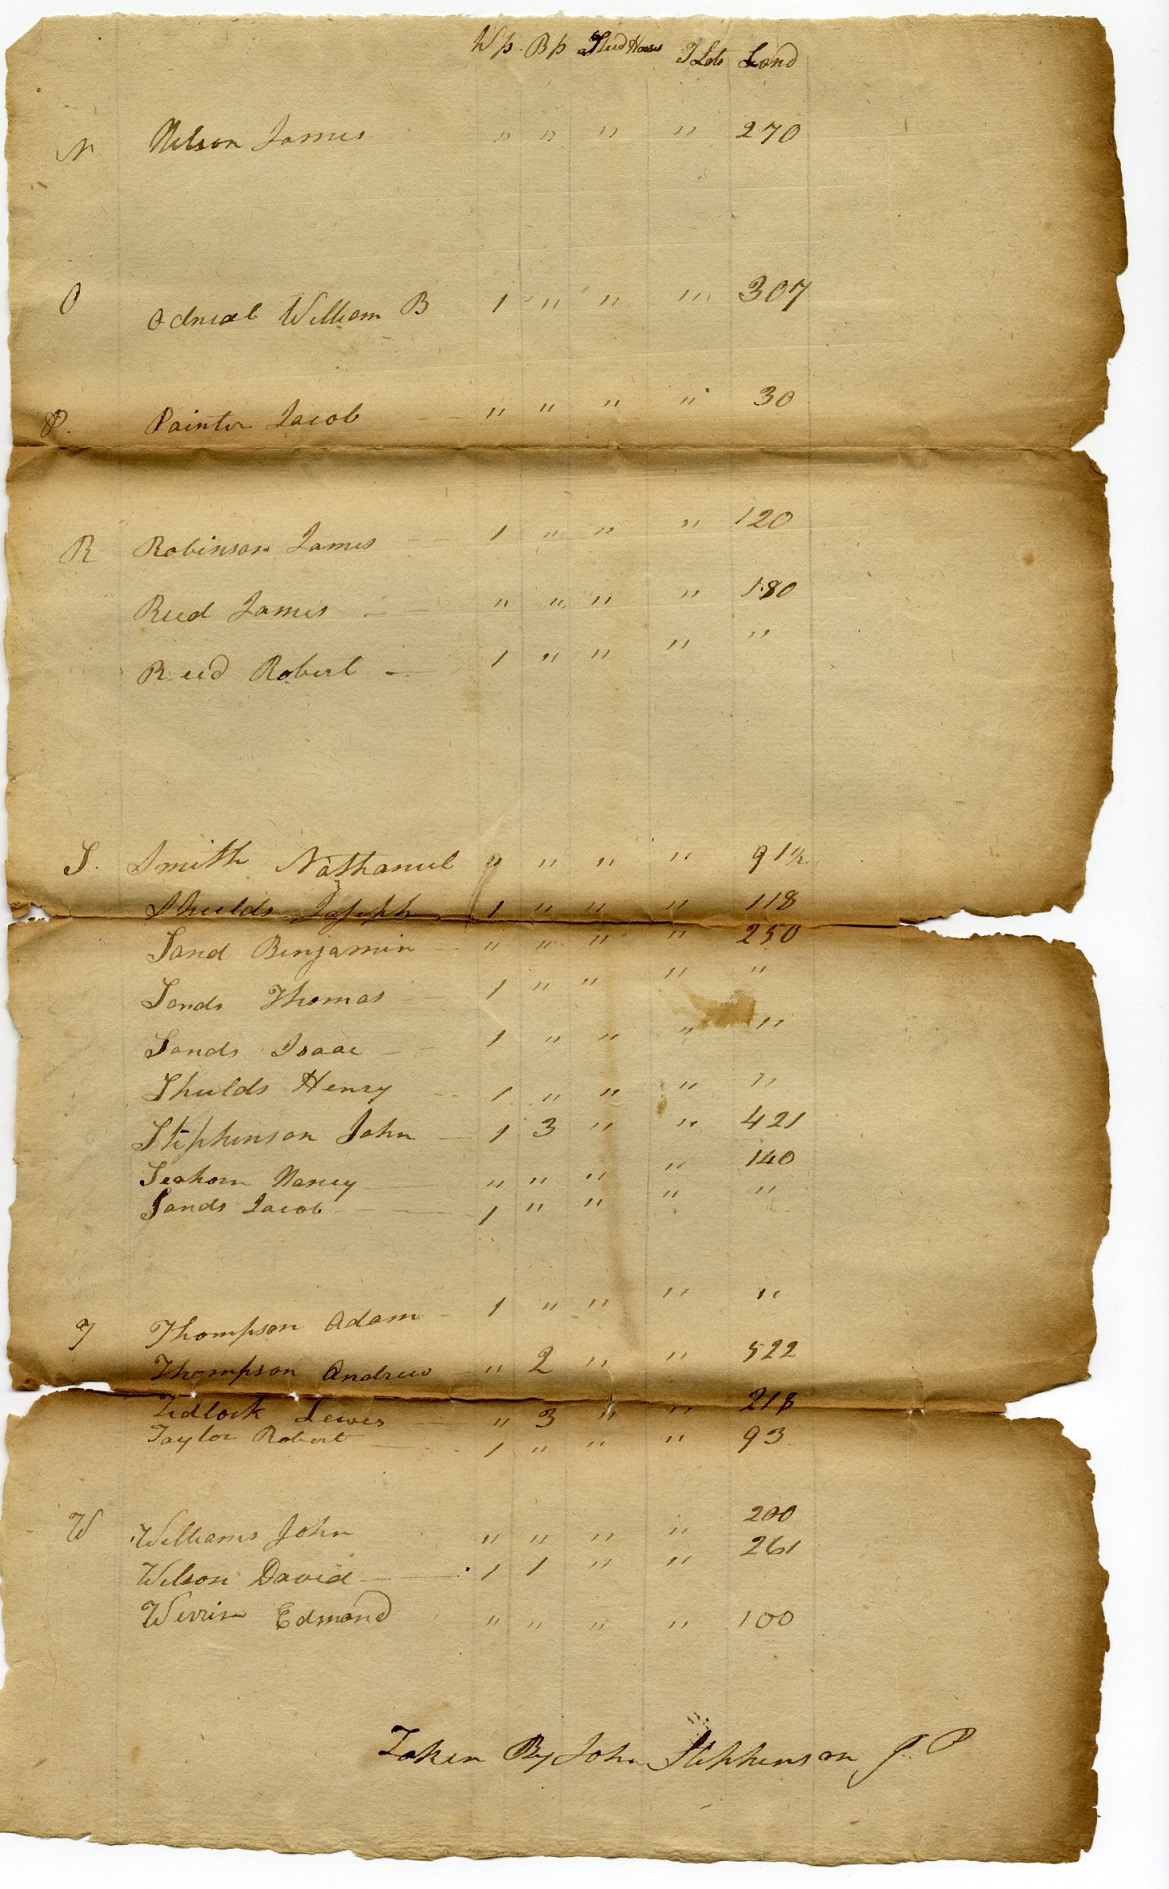 Wp. Bp Stud Horses T Lots Land
N Nelson James " " " " 270
O Odneal William B 1 " " " 307
P. Painter Jacob " " " " 30
R Robinson James 1 " " " 120
Reed James " " " " 180
Reed Robert 1 " " " "
S. Smith Nathaniel " " " " 91½
Sheilds Joseph 1 " " " 118
Sand Benjamin " " " " 250
Sands Thomas 1 " " " "
Sands Isaac 1 " " " "
Sheilds Henry 1 " " " "
Stephenson John 1 3 " " 421
Seahorn Nancy " " " " 140
Sands Jacob 1 " " " "
T Thompson Adam 1 " " " "
Thompson Andrew " 2 " " 522
Tedlock Lewes " 3 " " 218
Taylor Robert 1 " " " 93
W Williams John " " " " 200
Wilson David 1 1 " " 261
Edmond " " " " 100
Taken By John Stephenson J P